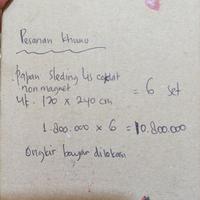 Pesanan khusus
papan sleding lis coklat
non magnet
uk. 120 x 240 cm
= 6 set
1.800.000 x 6 = 10.800.000
Ongkir bayar dilokasi